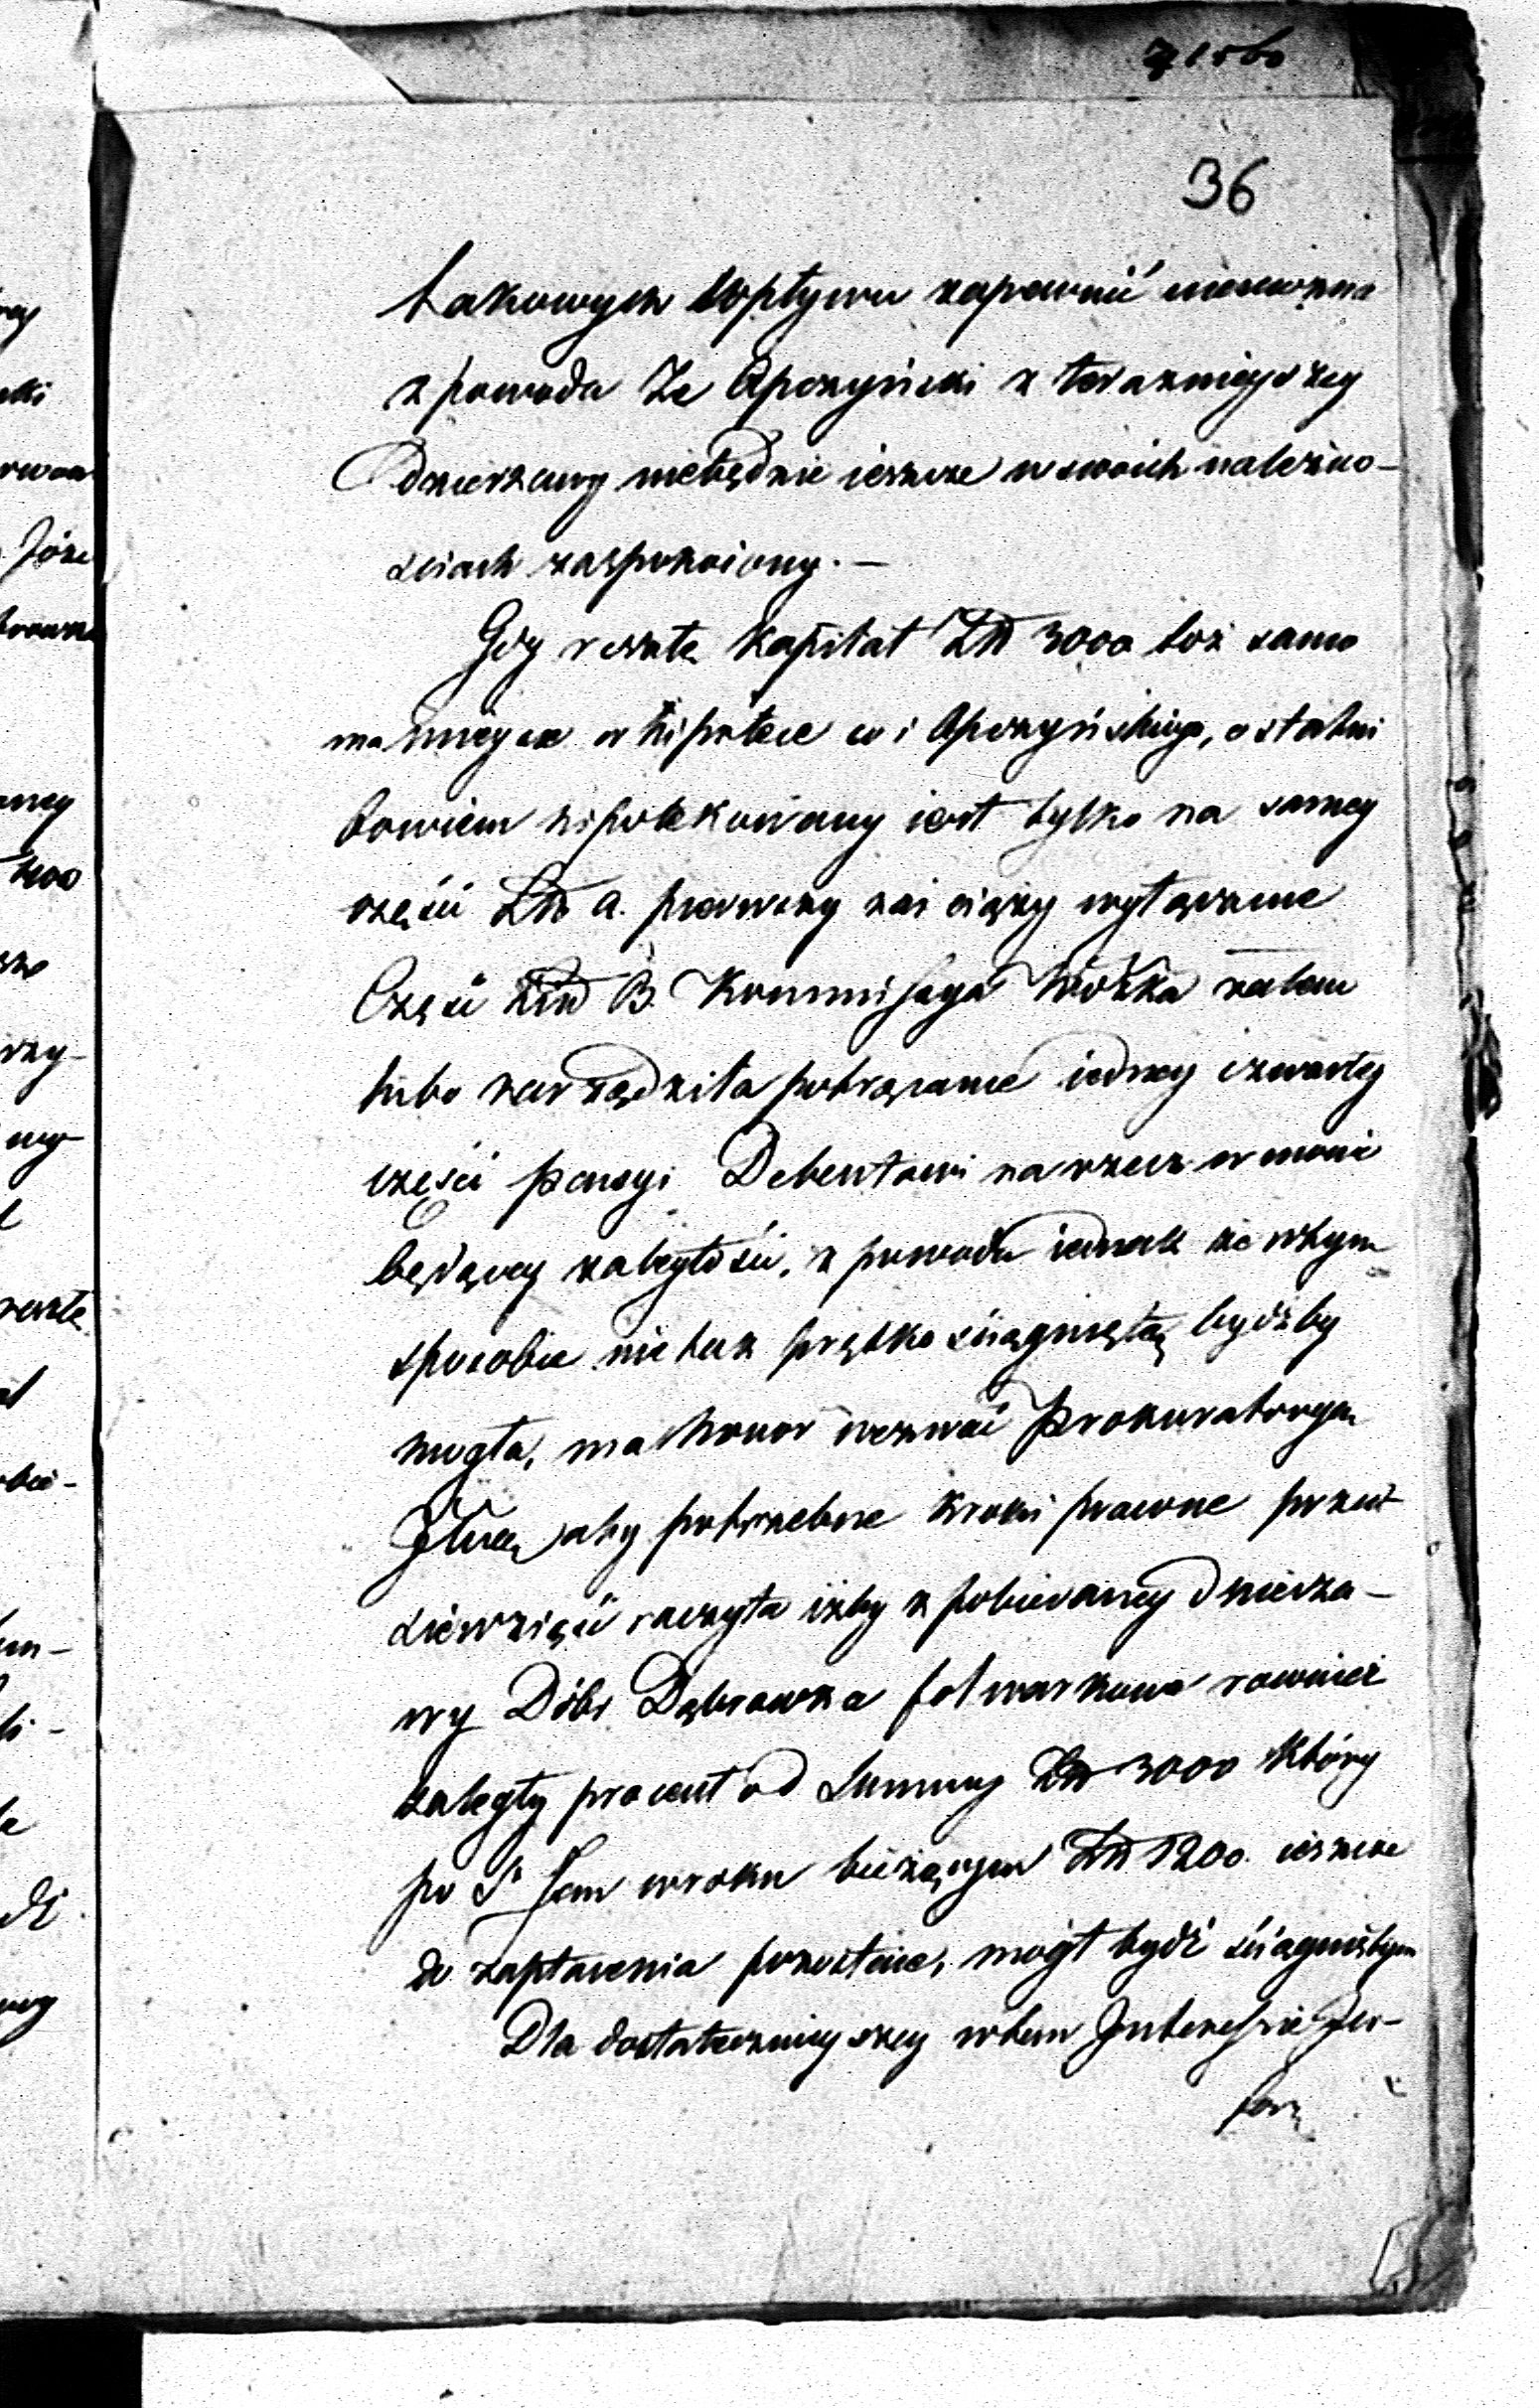 36
takowych wpływu zapewnić niemożna
z powodu Że Apczyński z teraznieyszey
Dzierzawy niebędzie ieszcze w swoich należno-
sciach zaspokoiony. —
Gdy resztę Kapitał Złł 3000 toż samo
ma mieysce w hipotece co i Apczyńskiego, ostatni
bowiem hipotekowany iest tylko na samey
części Litt a. pierwszy zaś ciąży wyłącznie
Części Litt B. Kommissya Woiewdzka zatem
lubo zarządziła potrącanie iedney czwartey
części Pensyi Debentowi na rzecz w mowie
będącey zaległości, z powodu iednak że wtym
sposobie nie tak prędko sciągniętą bydźby
mogła, ma honor wezwać Prokuratoryą
Jlną aby potrzebne kroki prawne przed-
siewziąść raczyła iżby z pobieraney Dzierża-
wy Dóbr Dąbrowka folwarkowa rownież
zaległy procent od Summy Złł 3000 który
po S. Jan w roku bieżącym Złł 1200. ieszcze
do zapłacenia pozostaie, mógł bydź sciągniętym
Dla dostatecznieyszey wtem Interessie Jn-
for